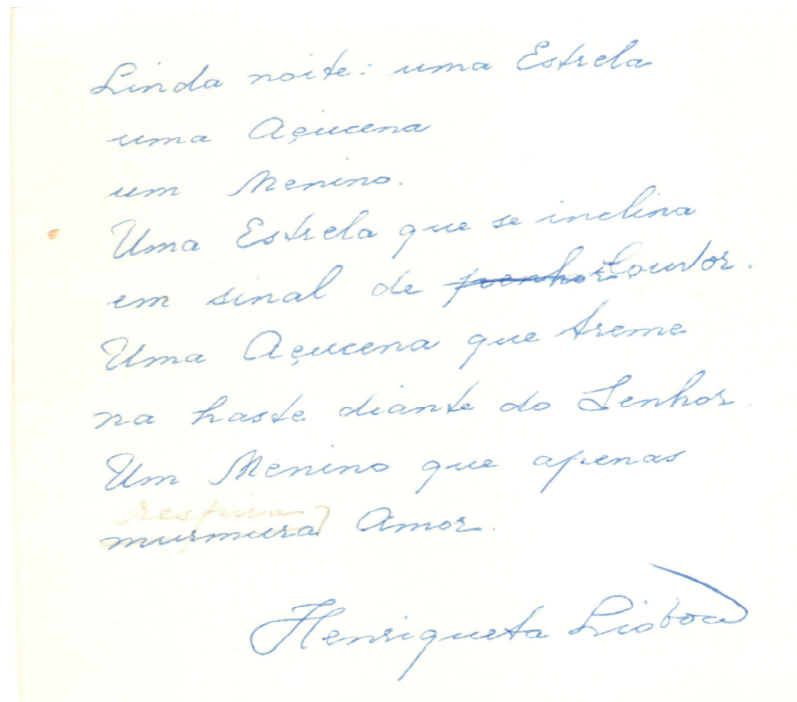 Linda noite: uma Estrela
uma Açucena
um Menino.
Uma Estrela que se inclina
em sinal de penhor Louvor.
Uma Açucena que treme
na haste diante do Senhor.
Um Menino que apenas
respira
murmura Amor.
Henriqueta Lisboa